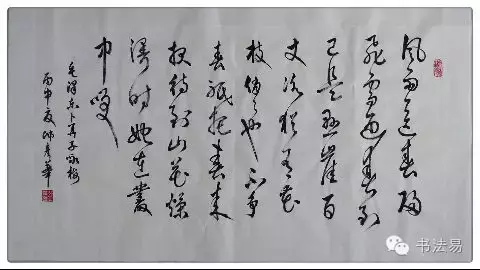 风雨送春歸
飛雪迎春到
已是懸崖百
丈冰猶有花
枝俏俏也不争
春祇把春來
报待到山花爛
漫时她在叢
中笑
毛澤东卜算子咏梅
丙申夏
书法易